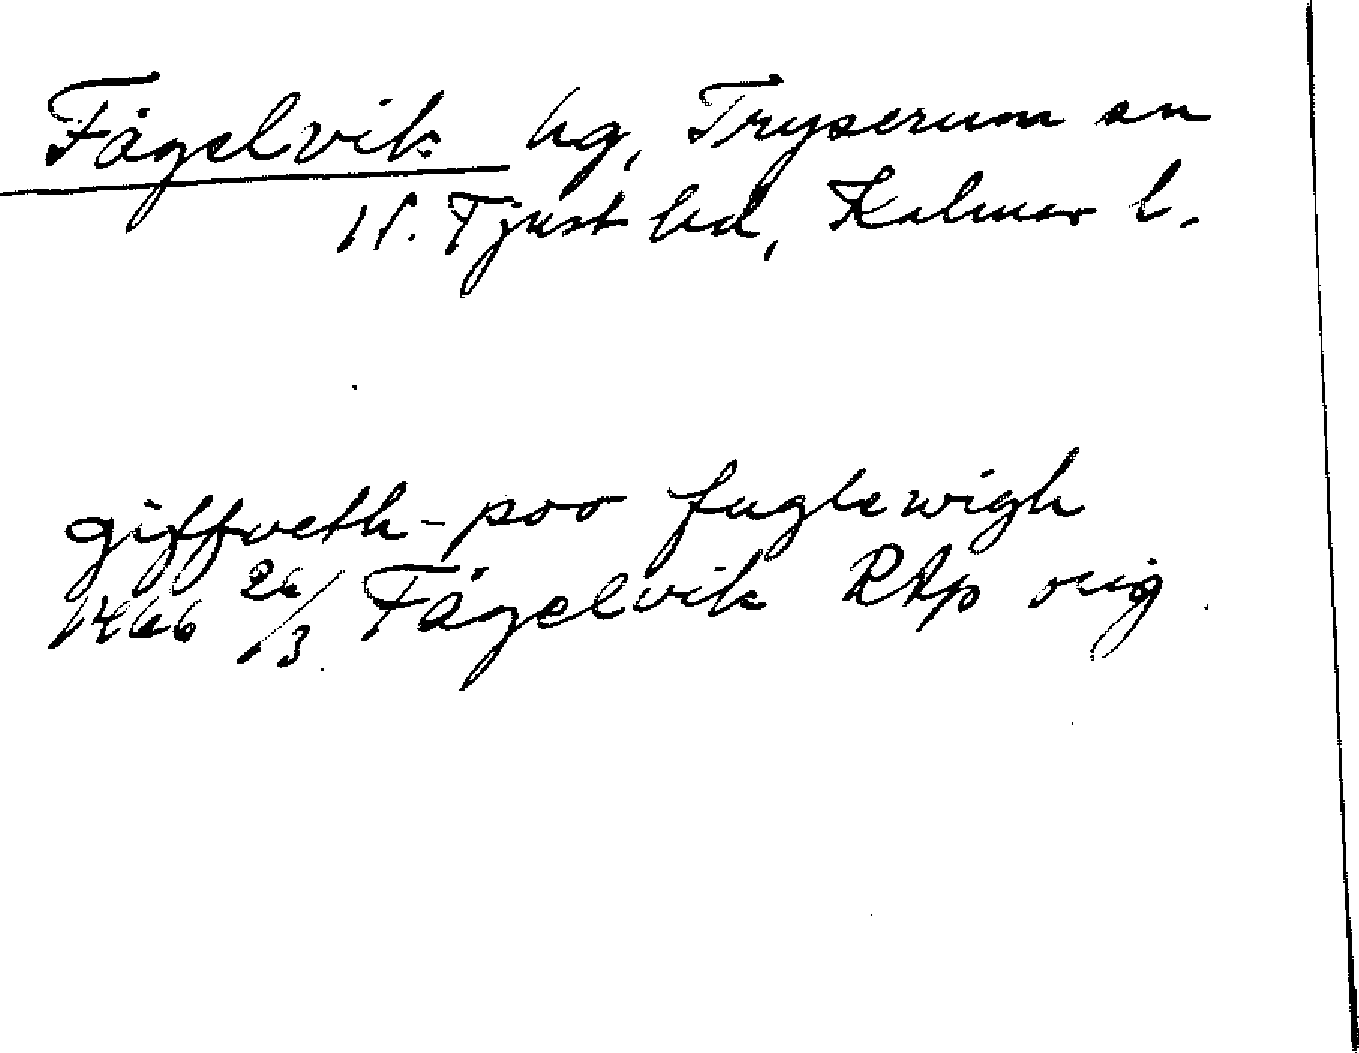 Fågelvik hg, Tryserum sn
N. Tjust hd, Kalmar l.
giffveth poo fuglewigh
1466 26/3 Fågelvik RAp orig